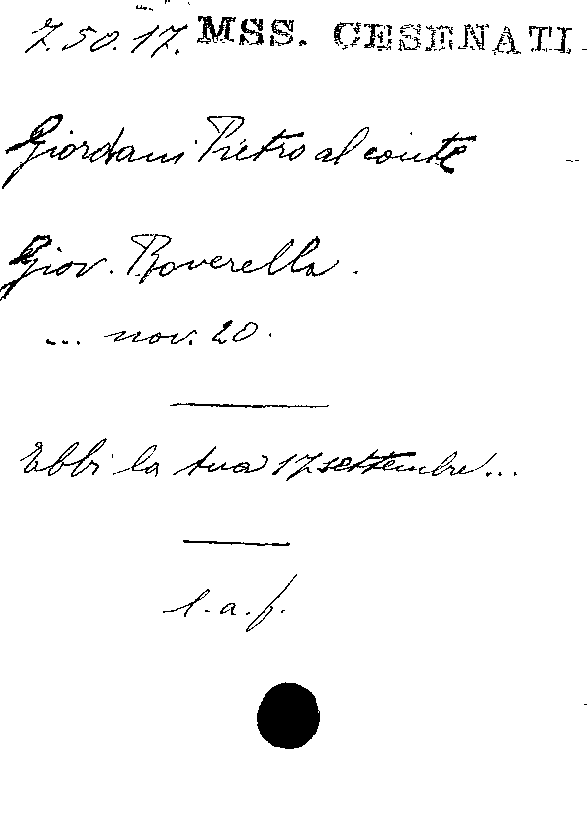 7.50.17. MSS. CESENATI
Giordani Pietro al conte
Giov. Roverella.
... nov. 20.
Ebbi la tua 17 settembre...
l. a. f.